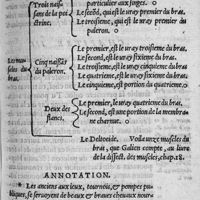 Trois naissãs de la poictrine.
particulier aux singes.
Le second, qui est le vray premier du bras.
Le troisiesme, qui est le vray premier du
paleron.
Les muscles du bras.
Cinq naissãs du paleron.
Le premier, est le vray troisiesme du bras.
Le second, est le vray sixiesme du bras.
Le troisiesme, est le vray cinquiesme du bras.
Le quatriesme, est le vray sixiesme du bras.
Le cinquiesme, est portion du quatriesme.
Deux des flancs.
Le premier, est le vray quatriesme du bras.
Le second, est une portion de la membrane
charnue.
Le Deltoeide. Voila unze muscles du
bras, que Galien compte, au livre
de la dissect. des muscles, chap. 18.
ANNOTATION.
* Les anciens aux ieux, tournois, & pompes publiques,
se servoyent de beaux & braves chevaux